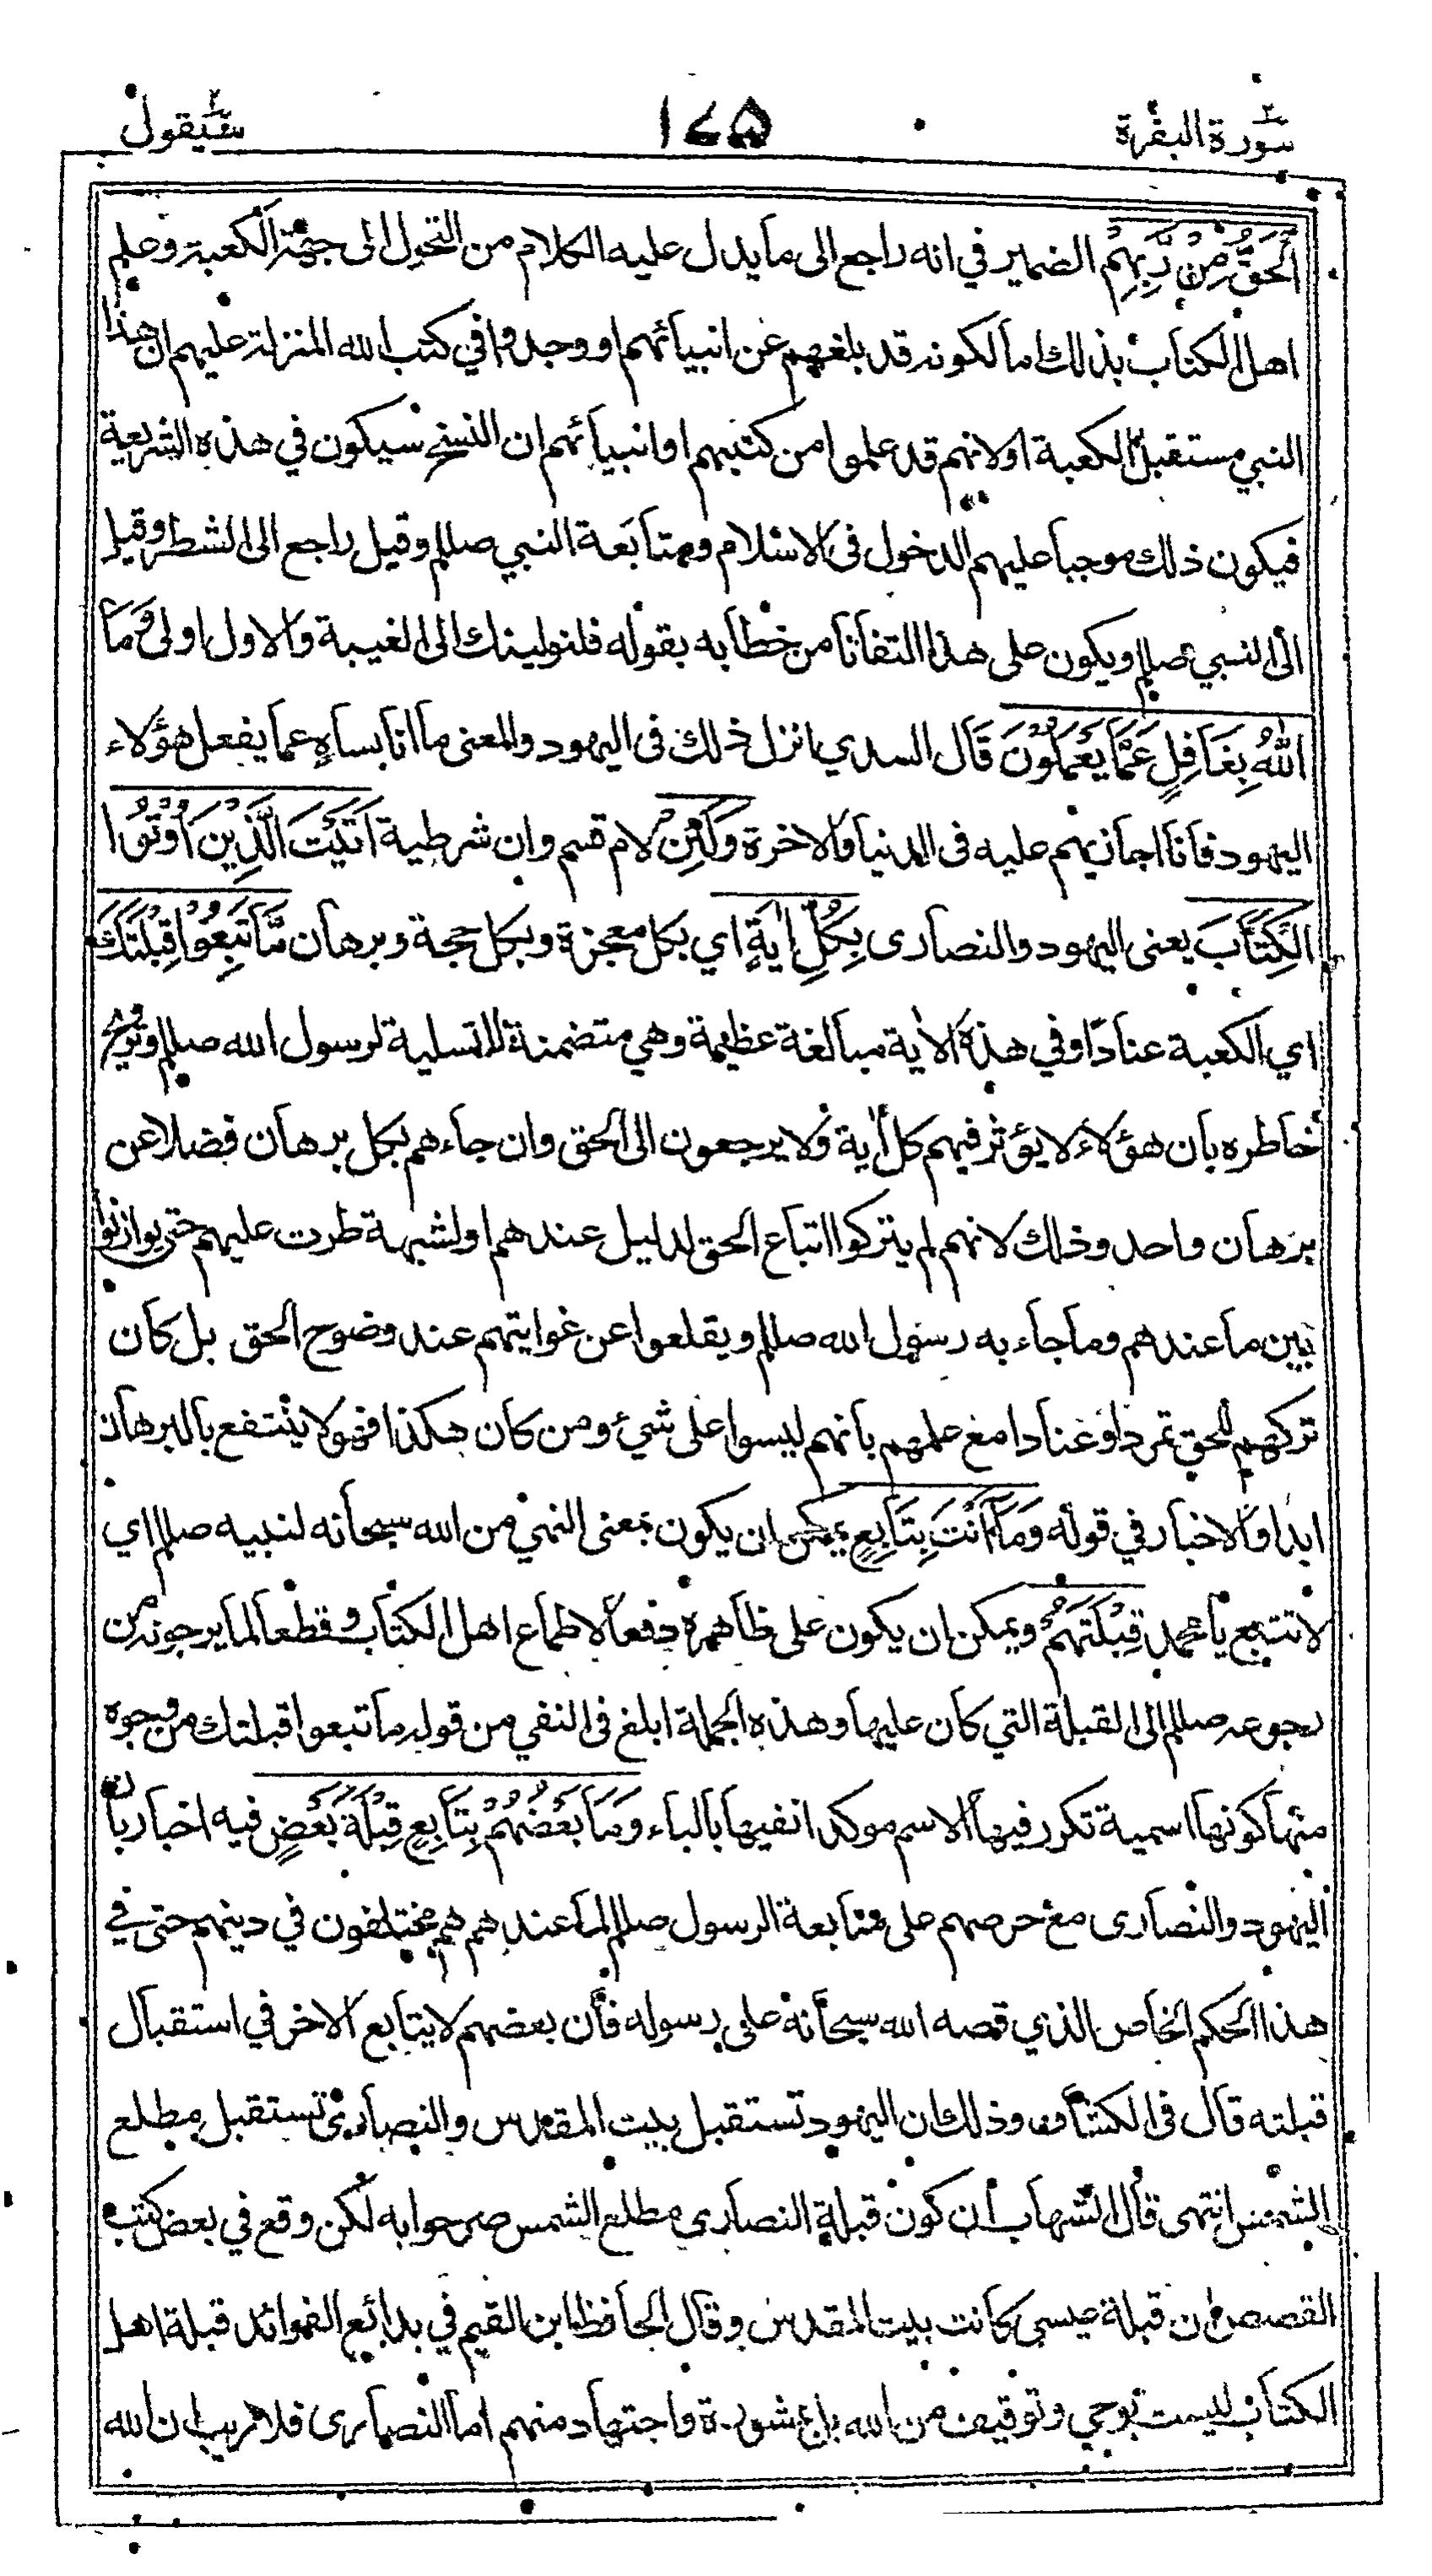 سورة البقرة ١٧٥ سيقول
اَلْحَقُّ مِنْ رَّبِّهِمْ الضمير في انه راجع الى ما يدل عليه الكلام من التحول الى جهة الكعبة وعلم
اهل الكتاب بذلك اما لكونه قد بلغهم عن انبيائهم او وجدوا في كتب الله المنزلة عليهم ان هذا
النبي مستقبل الكعبة او لانهم قد علموا من كتبهم او انبيائهم ان النسخ سيكون في هذه الشريعة
فيكون ذلك موجبا عليهم الدخول فى الاسلام ومتابعة النبي صللم وقيل راجع الى الشطر وقيل
الى النبي صللم ويكون على هذا التفاتا من خطابه بقوله فلنولينك الى الغيبة والاول اولى وَمَا
اللّٰهُ بِغَافِلٍ عَمَّا يَعْمَلُوْنَ قال السدي انزل ذلك فى اليهود والمعنى ما انا بساهٍ عما يفعل هؤلاء
اليهود فانا اجازيهم عليه فى الدنيا والاخرة وَلَئِنْ لام قسم وان شرطية اَتَيْتَ الَّذِيْنَ اُوْتُوا
الْكِتَابَ يعنى اليهود والنصارى بِكُلِّ اٰيَةٍ اي بكل معجزة وبكل حجة وبرهان مَّا تَبِعُوْا قِبْلَتَكَ
اي الكعبة عنادًا وفي هذه الاٰية مبالغة عظيمة وهي متضمنة للتسلية لرسول الله صللم وترويح
خاطره بان هؤلاء لا يؤثر فيهم كل اٰية ولا يرجعون الى الحق وان جاءهم بكل برهان فضلا عن
برهان واحد وذلك لانهم لم يتركوا اتباع الحق لدليل عندهم او لشبهة طرت عليهم حتى يوازنوا
بين ما عندهم وما جاء به رسول الله صللم ويقلعوا عن غوايتهم عند وضوح الحق بل كان
تركهم للحق تمردا وعنادا مع علمهم بانهم ليسوا على شيء ومن كان هكذا فهو لا ينتفع بالبرهان
ابدا والاخبار في قوله وَمَا اَنْتَ بِتَابِعٍ يمكن ان يكون بمعنى النهي من الله سبحانه لنبيه صللم اي
لا تتبع يا محمد قِبْلَتَهُمْ ويمكن ان يكون على ظاهره دفعا لاطماع اهل الكتاب وقطعا لما يرجونه من
رجوعه صللم الى القبلة التي كان عليها وهذه الجملة ابلغ فى النفي من قوله ما تبعوا قبلتك من وجوه
منها كونها اسمية تكرر فيها الاسم موكدا نفيها بالباء وَمَا بَعْضُهُمْ بِتَابِعٍ قِبْلَةَ بَعْضٍ فيه اخبار بان
اليهود والنصارى مع حرصهم على متابعة الرسول صللم لما عندهم هم مختلفون في دينهم حتى في
هذا الحكم الخاص الذي قصه الله سبحانه على رسوله فان بعضهم لا يتابع الاخر في استقبال
قبلته قال فى الكشاف وذلك ان اليهود تستقبل بيت المقدس والنصارى تستقبل مطلع
الشمس انتهى قال الشهاب ان كون قبلة النصارى مطلع الشمس صرحوا به لكن وقع في بعض كتب
القصص ان قبلة عيسى كانت بيت المقدس وقال الحافظ ابن القيم في بدائع الفوائد قبلة اهل
الكتاب ليست بوحي وتوقيف من الله بل بمشورة واجتهاد منهم اما النصارى فلا ريب ان الله